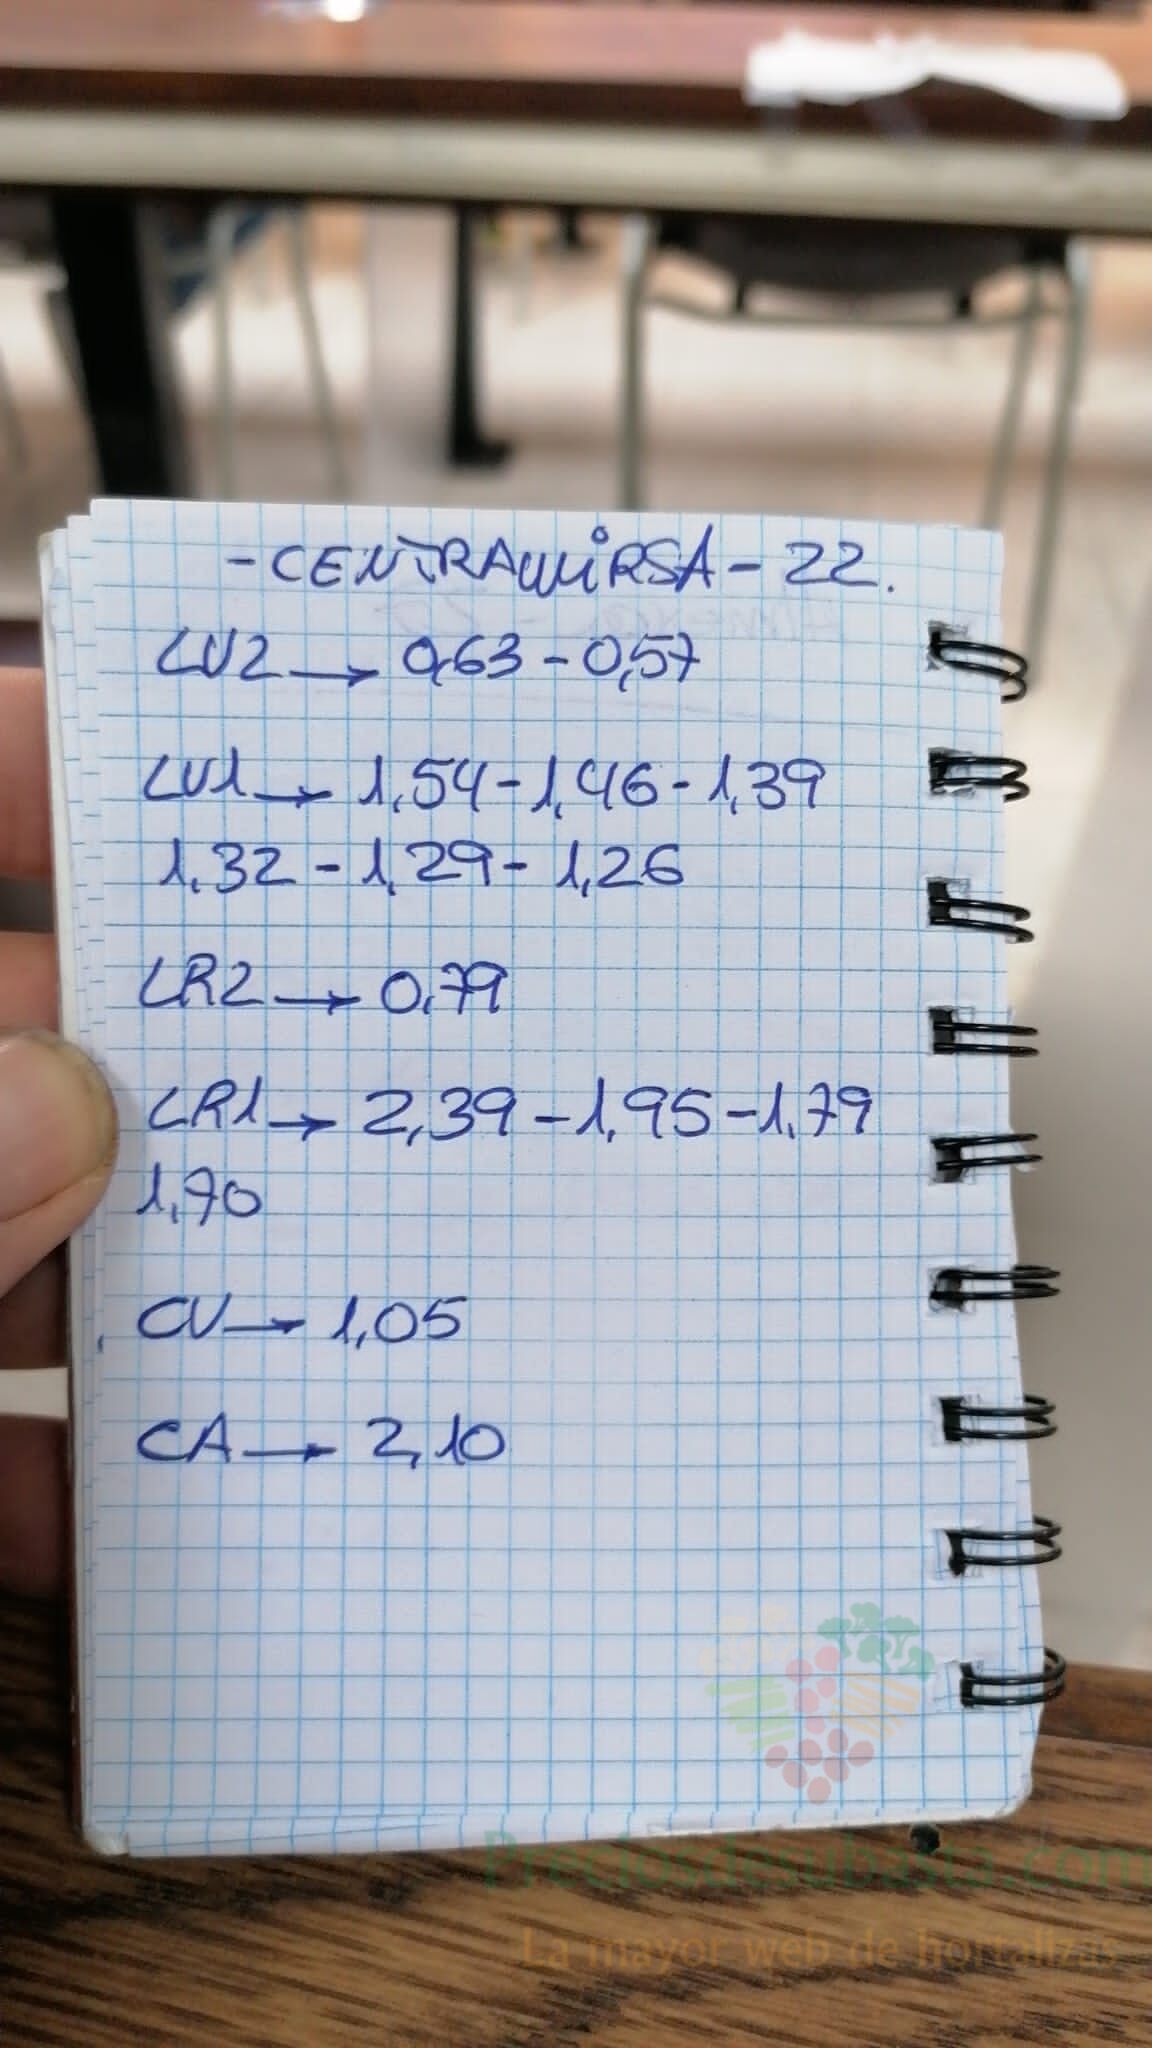 -CENTRAMIRSA- 22.
LV2 → 0,63 - 0,57
LV1 → 1,54 - 1,46 - 1,39
1,32 - 1,29 - 1,26
LR2 → 0,79
LR1 → 2,39 - 1,95 - 1,79
1,70
CV → 1,05
CA → 2,10
Preciosdesubasta.com
La mayor web de hortalizas